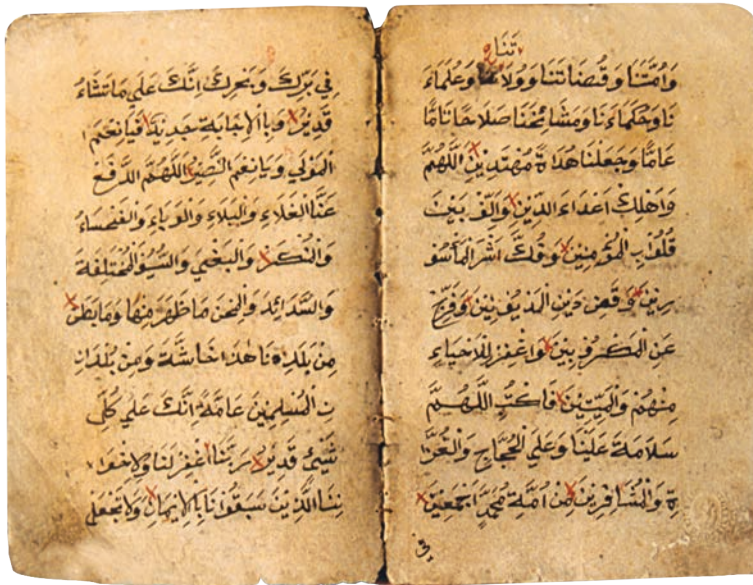 تنا
وَاُمَّتَنَا وَقُضَاتَنَا وَوُلَا وَعُلَمَاءَ
نَا وَحُكَمَاءَنَا وَمَشَائِخَنَا صَلَاحًا تَامًّا
عَامًّا وَجَعَلْنَا هُدَاةً مُهْتَدِيْنَ اَللَّهُمَّ
وَاَهْلِكْ اَعْدَاءَ الدِّيْنِ وَاَلِّفْ بَيْنَ
قُلُوْبِ الْمُؤْمِنِيْنَ وَفُكَّ اَسْرَ الْمَأْسُوْ
رِيْنَ وَقْضِ دَيْنِ الْمَدْيُوْنِيْنَ وَفَرِّجْ
عَنِ الْمَكْرُوْبِيْنَ وَاغْفِرْ لِلْاَحْيَاءِ
مِنْهُمْ وَالْمَيِّتِيْنَ فَاكْتُبِ اللَّهُمَّ
سَلَامَةً عَلَيْنَا وَعَلَي الْحُجَّاجِ وَالْغُزَّا
ةِ وَالْمُسَافِرِيْنَ مِنْ اُمَّةِ مُحَمَّدٍ اَجْمَعِيْنَ
فِي بَرِّكَ وَبَحْرِكَ اِنَّكَ عَلَي مَا تَشَاءُ
قَدِيْرٌ وَبِالْاِجَابَةِ جَدِيْرٌ فَيَا نِعْمَ
الْمَوْلَي وَيَا نِعْمَ النَّصِيْرُ اَللَّهُمَّ الدْفَعْ
عَنَّا الْغَلَاءِ وَالْبَلَاءِ وَالْوَبَاءِ وَالْفَحْسَاءُ
وَالْمُنْكَرِ وَالْبَغْيِ وَالسُّيُوْ الْمُخْتَلِفَةَ
وَالسَّدَائِدَ وَالْمِحَنَ مَا ظَهَرَ مِنْهَا وَمَا بَطَنَ
مِنْ بَلَدِنَا هٰذَا خَاسَّةً وَمِنْ بُلْدَانِ
نِ الْمُسْلِمِيْنَ عَامَّةً اِنَّكَ عَلَي كُلِّ
شَيْءٍ قَدِيْرٌ رَبَّنَا اغْفِرْ لَنَا وَلِاِخْوَا
نِنَا الَّذِيْنَ سَبَقُوْنَا بِالْاِيْمَانِ وَلَا تَجْعَلْ